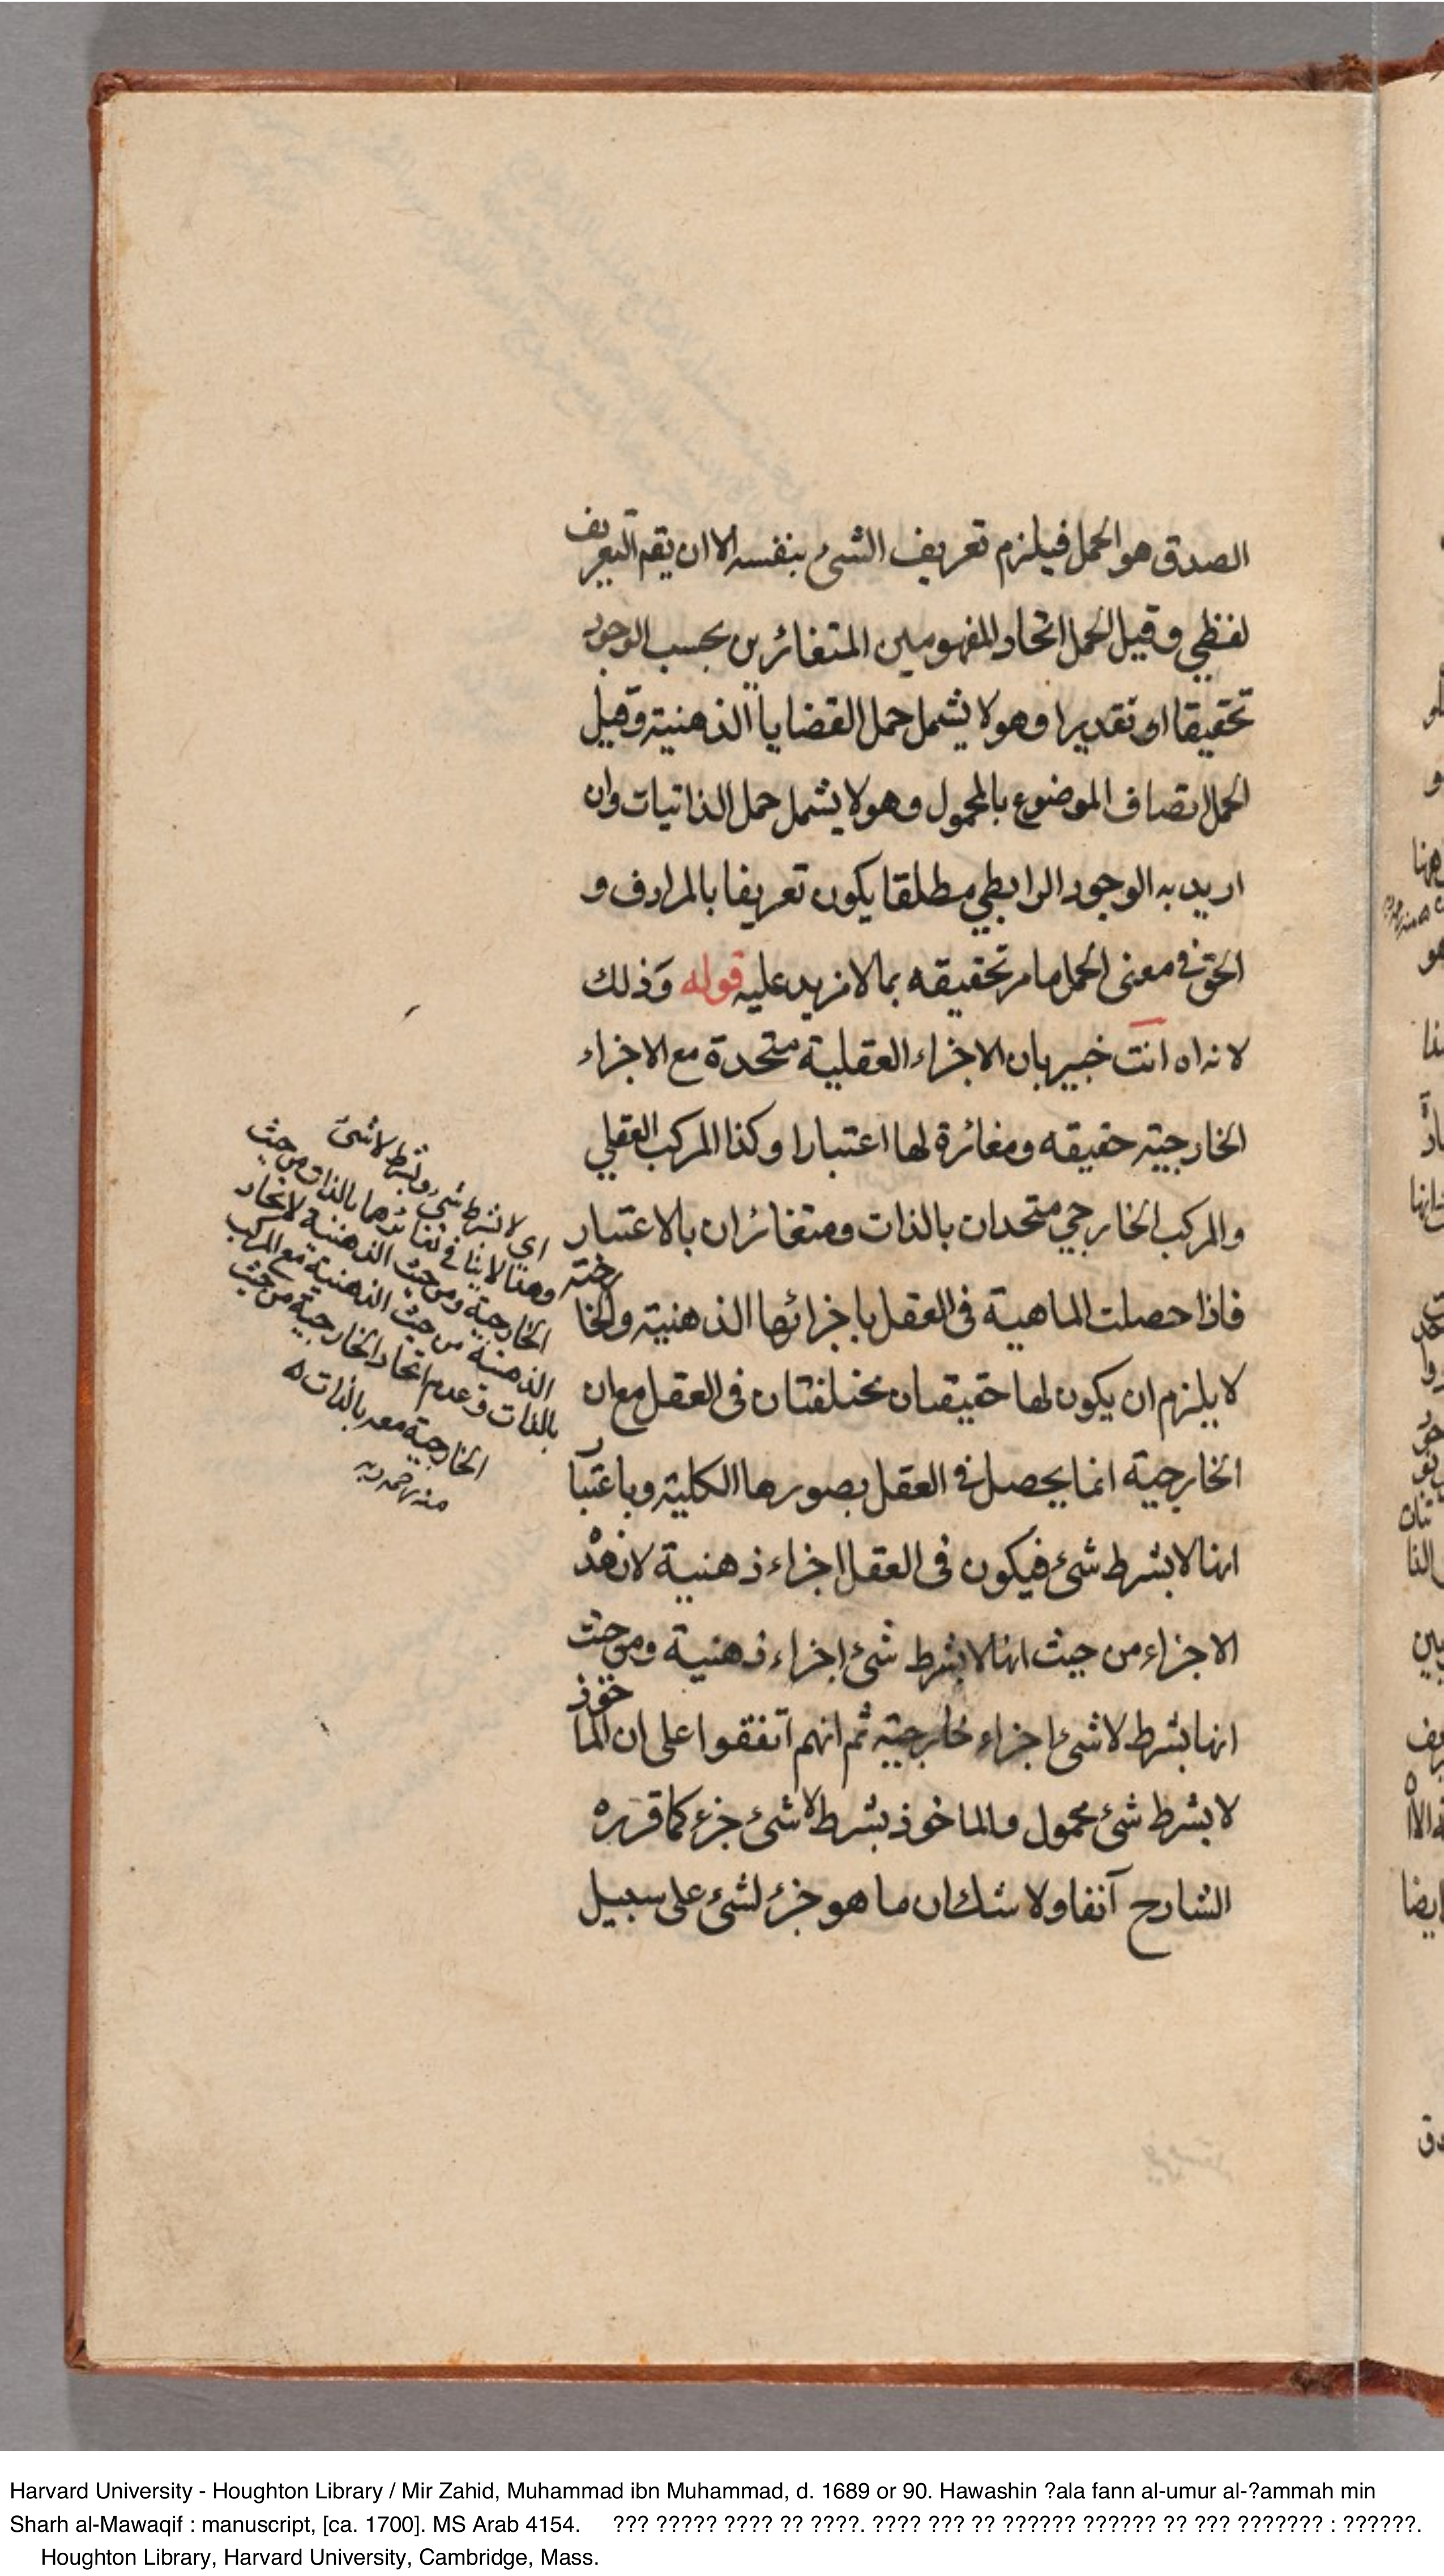 الصدق هو الحمل فيلزم تعريف الشئ بنفسه الا ان يقم التعريف
لفظي وقيل الحمل اتحاد المفهومين المتغائرين بحسب الوجود
تحقيقا او تقديرا وهو لا يشمل حمل القضايا الذهنية وقيل
الحمل اتصاف الموضوع بالمحمول وهو لا يشمل حمل الذاتيات وان
اريد به الوجود الرابطي مطلقا يكون تعريفا بالمرادف و
الحق في معنى الحمل ما مر تحقيقه بما لا مزيد عليه قوله وذلك
لانه اه انت خبير بان الاجزاء العقلية متحدة مع الاجزاء
الخارجية حقيقه ومغائرة لها اعتبارا وكذا المركب العقلي
والمركب الخارجي متحدان بالذات ومتغائران بالاعتبار
فاذا حصلت الماهية في العقل باجزائها الذهنية والخارجية
لا يلزم ان يكون لها حقيقتان مختلفتان في العقل مع ان
الخارجية انما يحصل في العقل بصورها الكلية وباعتبار
انها لا بشرط شئ فيكون في العقل اجزاء ذهنية لان هذ
الاجزاء من حيث انها لا بشرط شئ اجزاء ذهنية ومن حيث
انها بشرط لا شئ اجزاء خارجية ثم انهم اتفقوا على ان الماخوذ
لا بشرط شئ محمول والماخوذ بشرط لا شئ جزء كما قرره
الشارح آنفا ولا شك ان ما هو جزء لشئ على سبيل
اي لا بشرط شئ وبشرط لا شئ
وهذا لا ينافي تغائرها بالذات من حيث
الخارجية ومن حيث الذهنية لاتحاد
الذهنية من حيث الذهنية مع المركب
بالذات وعدم اتحاد الخارجية من حيث
الخارجية معه بالذات
منه رحمه ربه
Harvard University - Houghton Library / Mir Zahid, Muhammad ibn Muhammad, d. 1689 or 90. Hawashin ?ala fann al-umur al-?ammah min
Sharh al-Mawaqif : manuscript, [ca. 1700]. MS Arab 4154. ??? ????? ???? ?? ????. ???? ??? ?? ?????? ?????? ?? ??? ??????? : ??????.
Houghton Library, Harvard University, Cambridge, Mass.